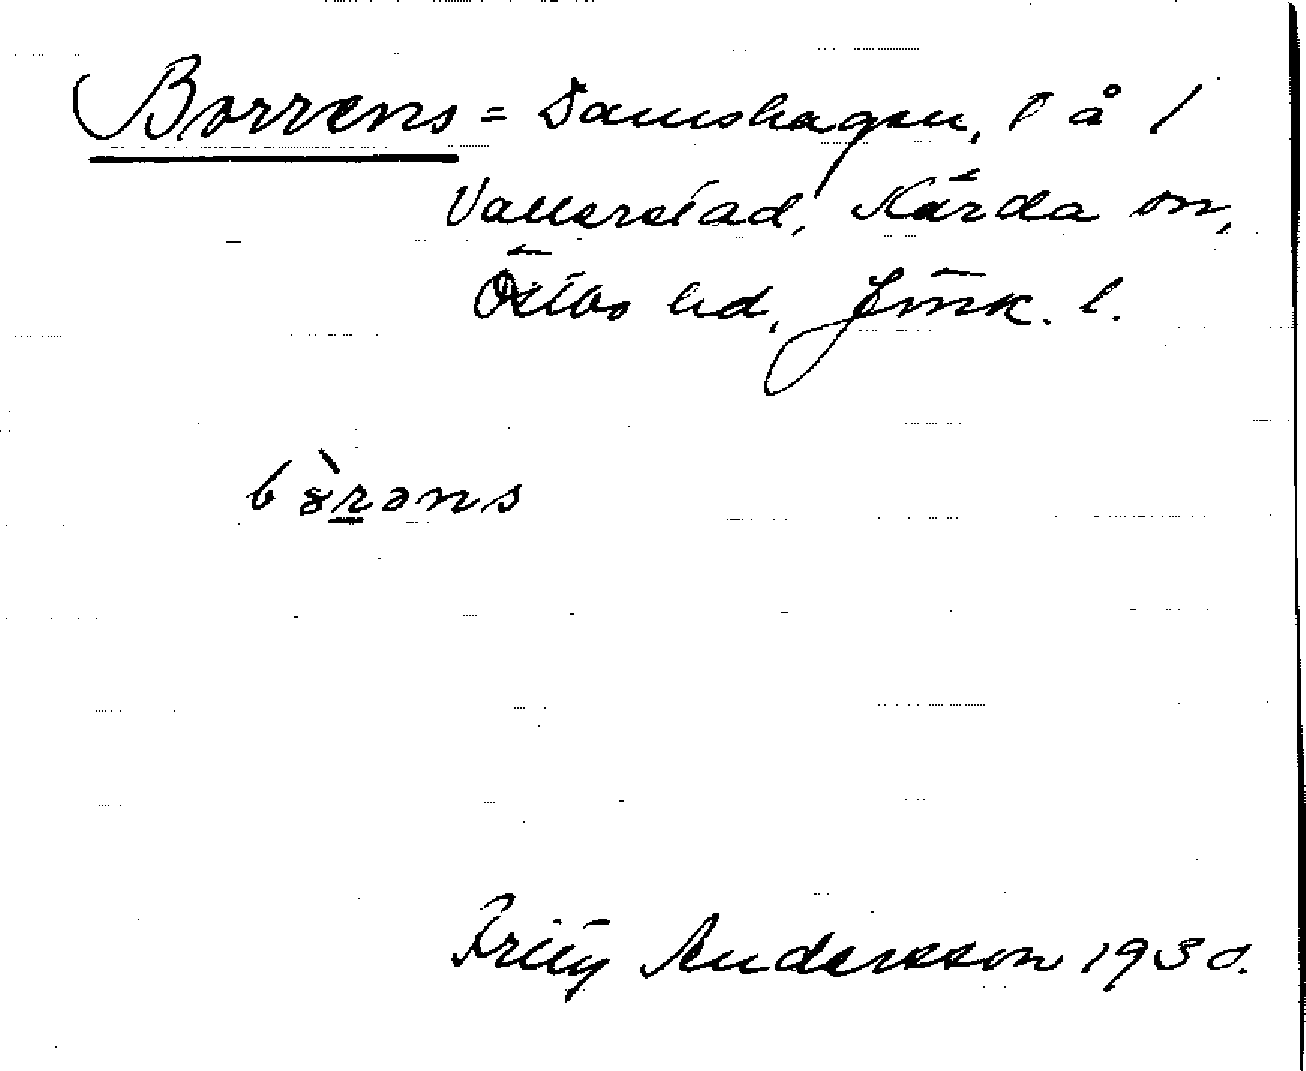 Borrens = Damshagen, l å 1
Vallerstad, Kärda sn,
Östbo hd, Jönk. l.
bòrəns
Fritz Andersson 1930.